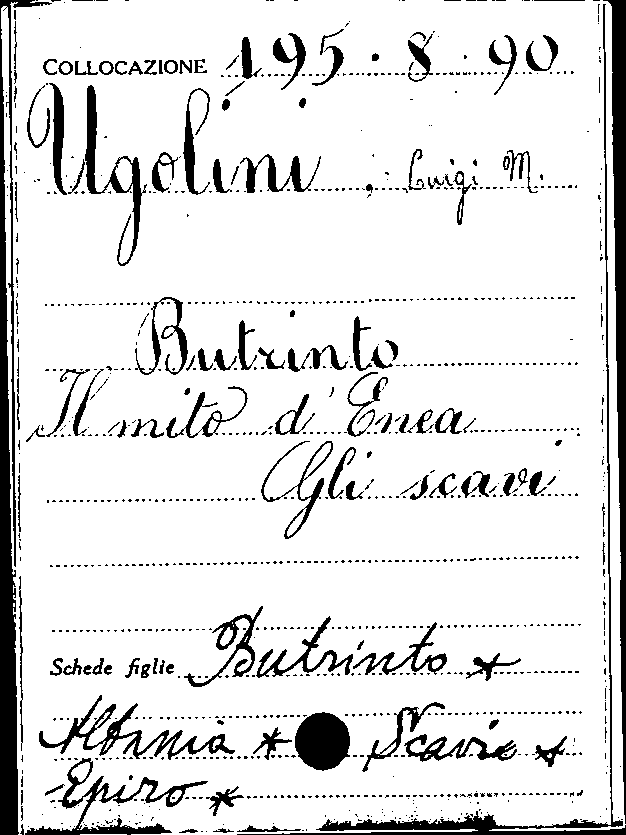 COLLOCAZIONE 195.8.90
Ugolini, Luigi M.
Butrinto
Il mito d'Enea
Gli scavi
Schede figlie Butrinto *
Albania * Scavi *
Epiro *